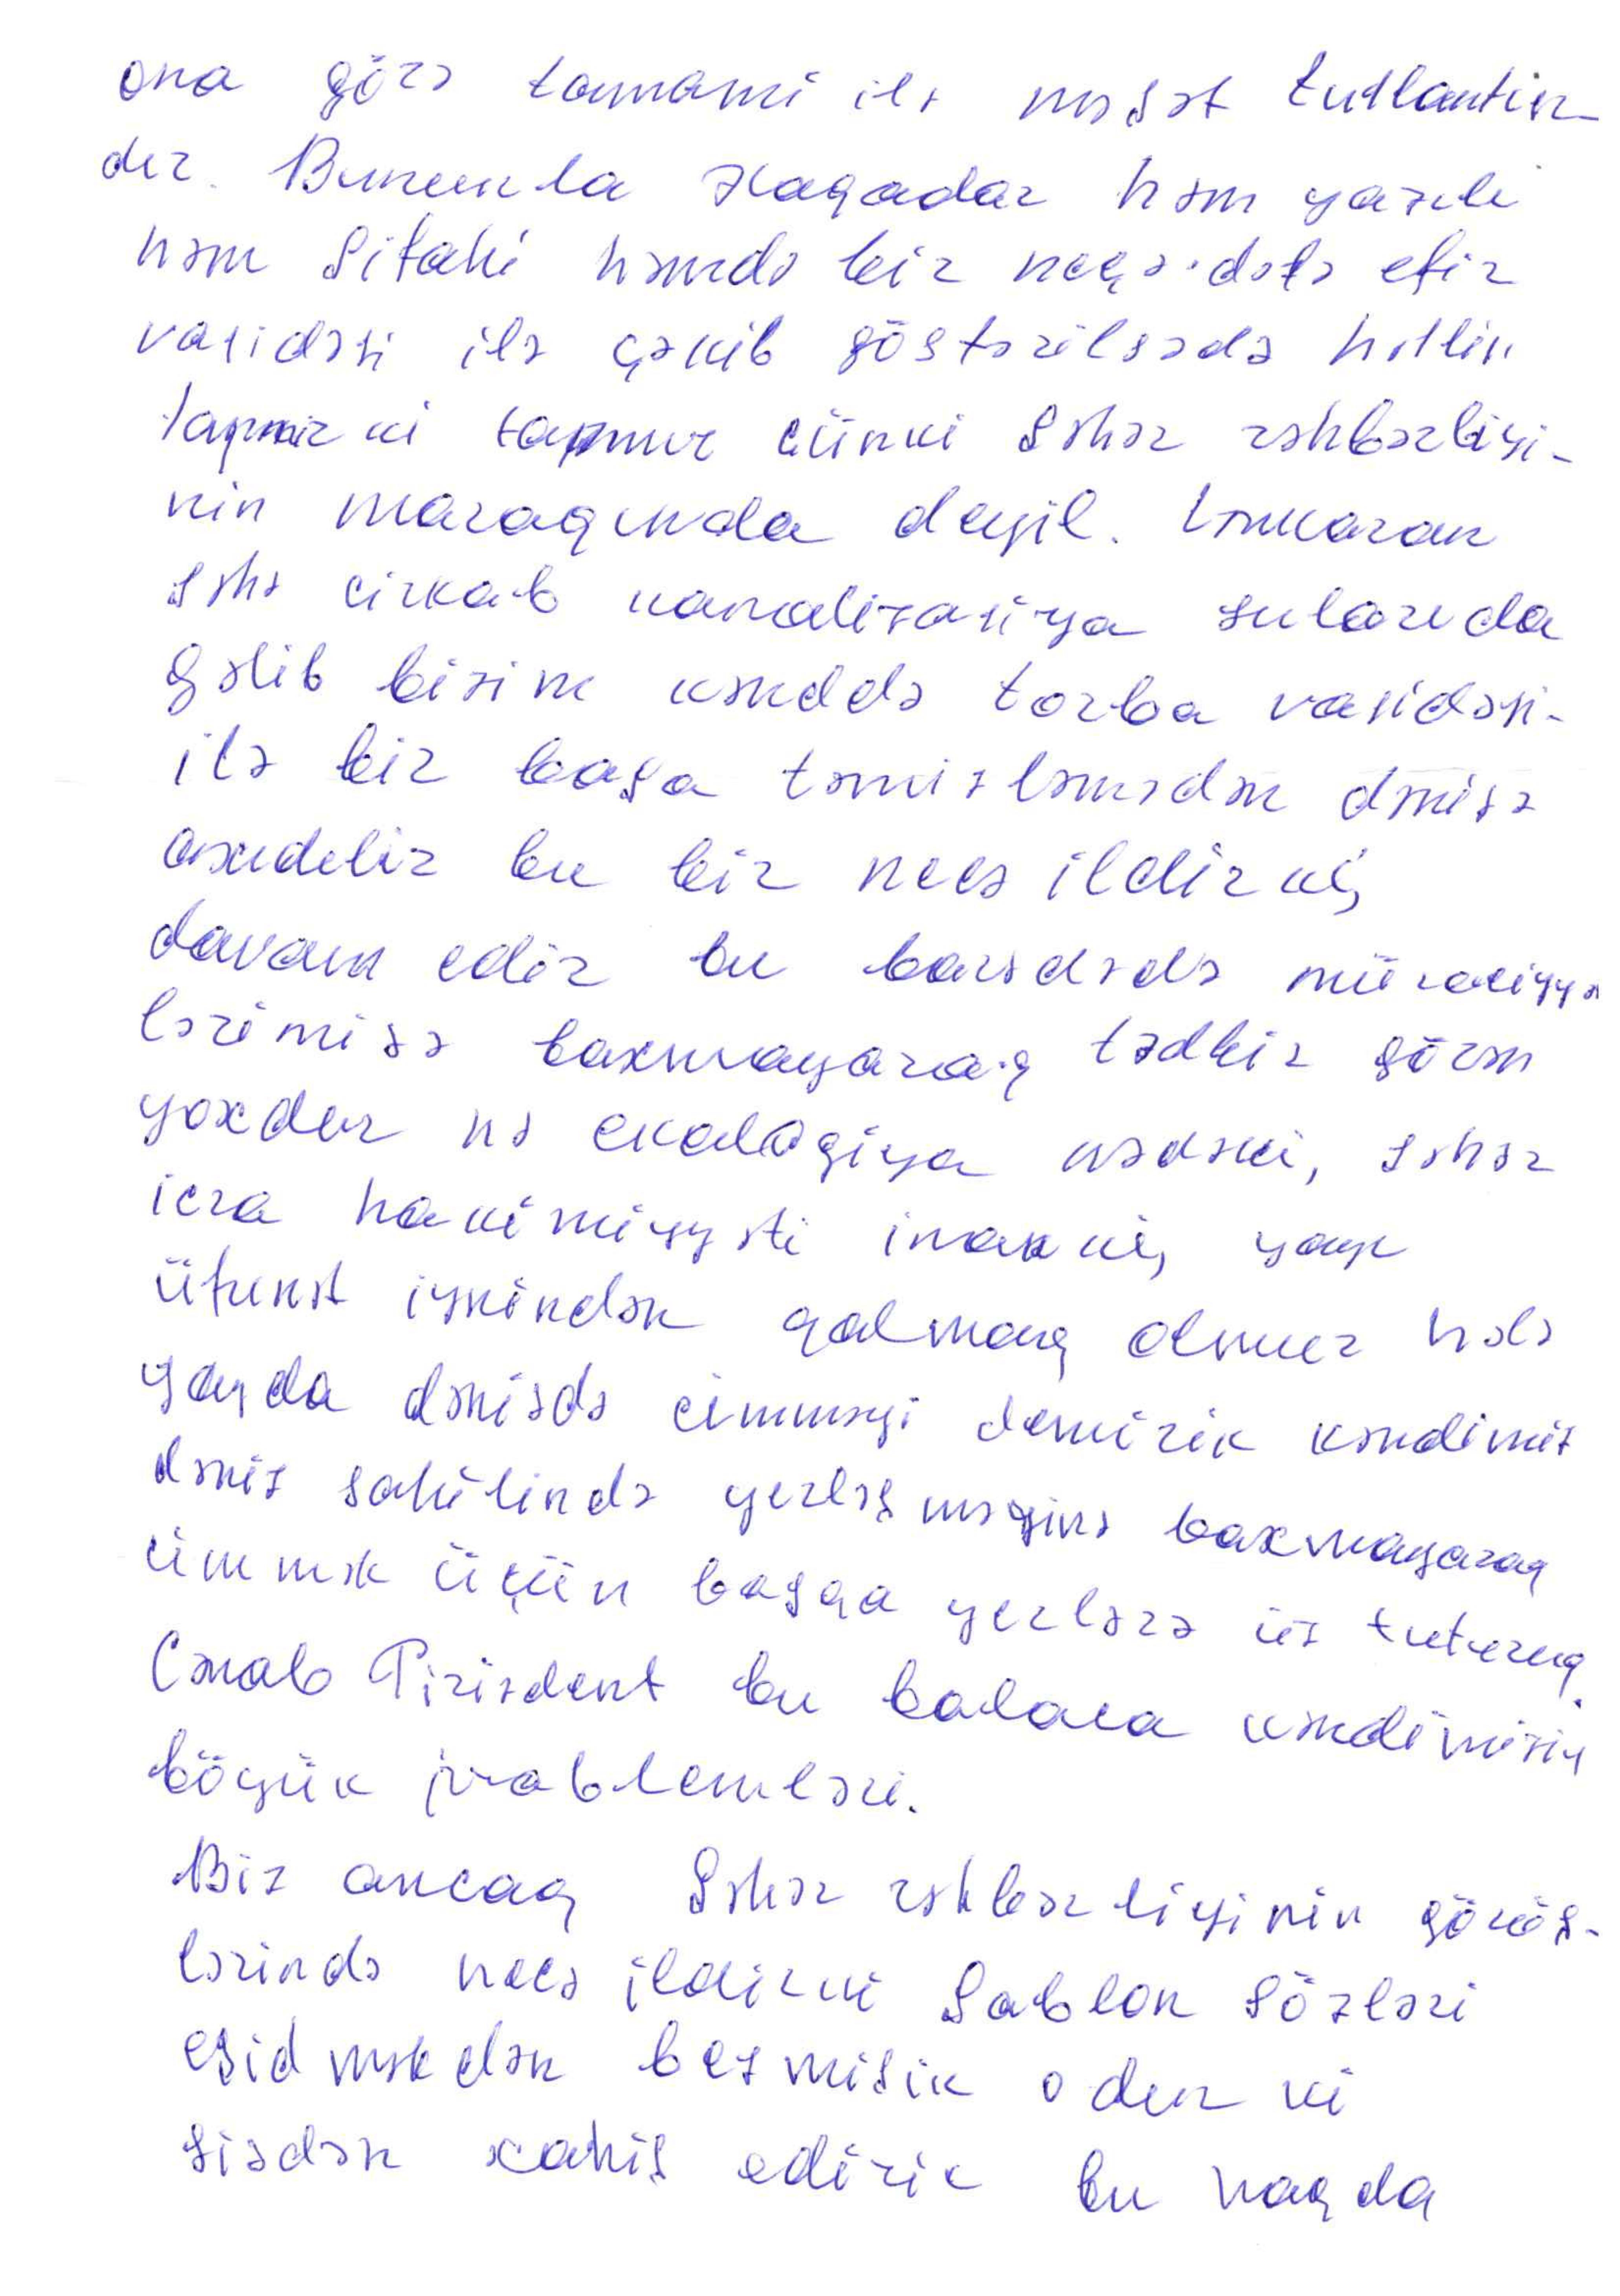 ona görə tamami ilə nəşət tutlantin-
dır. Bununla əlaqadar həm yazılı
həm şifahi həmdə bir neçə dəfə efir
vasidəsi ilə çəkib göstərilsədə həllin
tapmır ki tapmır çünki şəhər rəhbərliyi-
nin maraqında deyil. Lənkaran
şəhə çirkab kanalizasiya sularıda
gəlib bizim kənddə torba vasidəsi-
ilə bir başa təmizləmədən dənizə
axıdılır bu bir necə ildirki,
davam edir bu barədədə müraciyyə
lərimizə baxmayaraq tədbir görən
yoxdur nə ekalogiya nədəki, şəhər
icra hakimiyyəti inanki, yayın
üfunət iyindən qalmaq olmur hələ
yayda dənizdə çimməyi demirik kəndimiz
dəniz sahilində yerləşməyinə baxmayaraq
çimmək üçün başqa yerlərə üz tuturuq.
Cənab Pirizdent bu balaca kəndimizin
böyük prablemləri.
Biz ancaq Şəhər rəhbərliyinin görüş-
lərində necə ildirki şablon sözləri
eşidməkdən bezmişik odur ki
sizdən xahiş edirik bu haqda